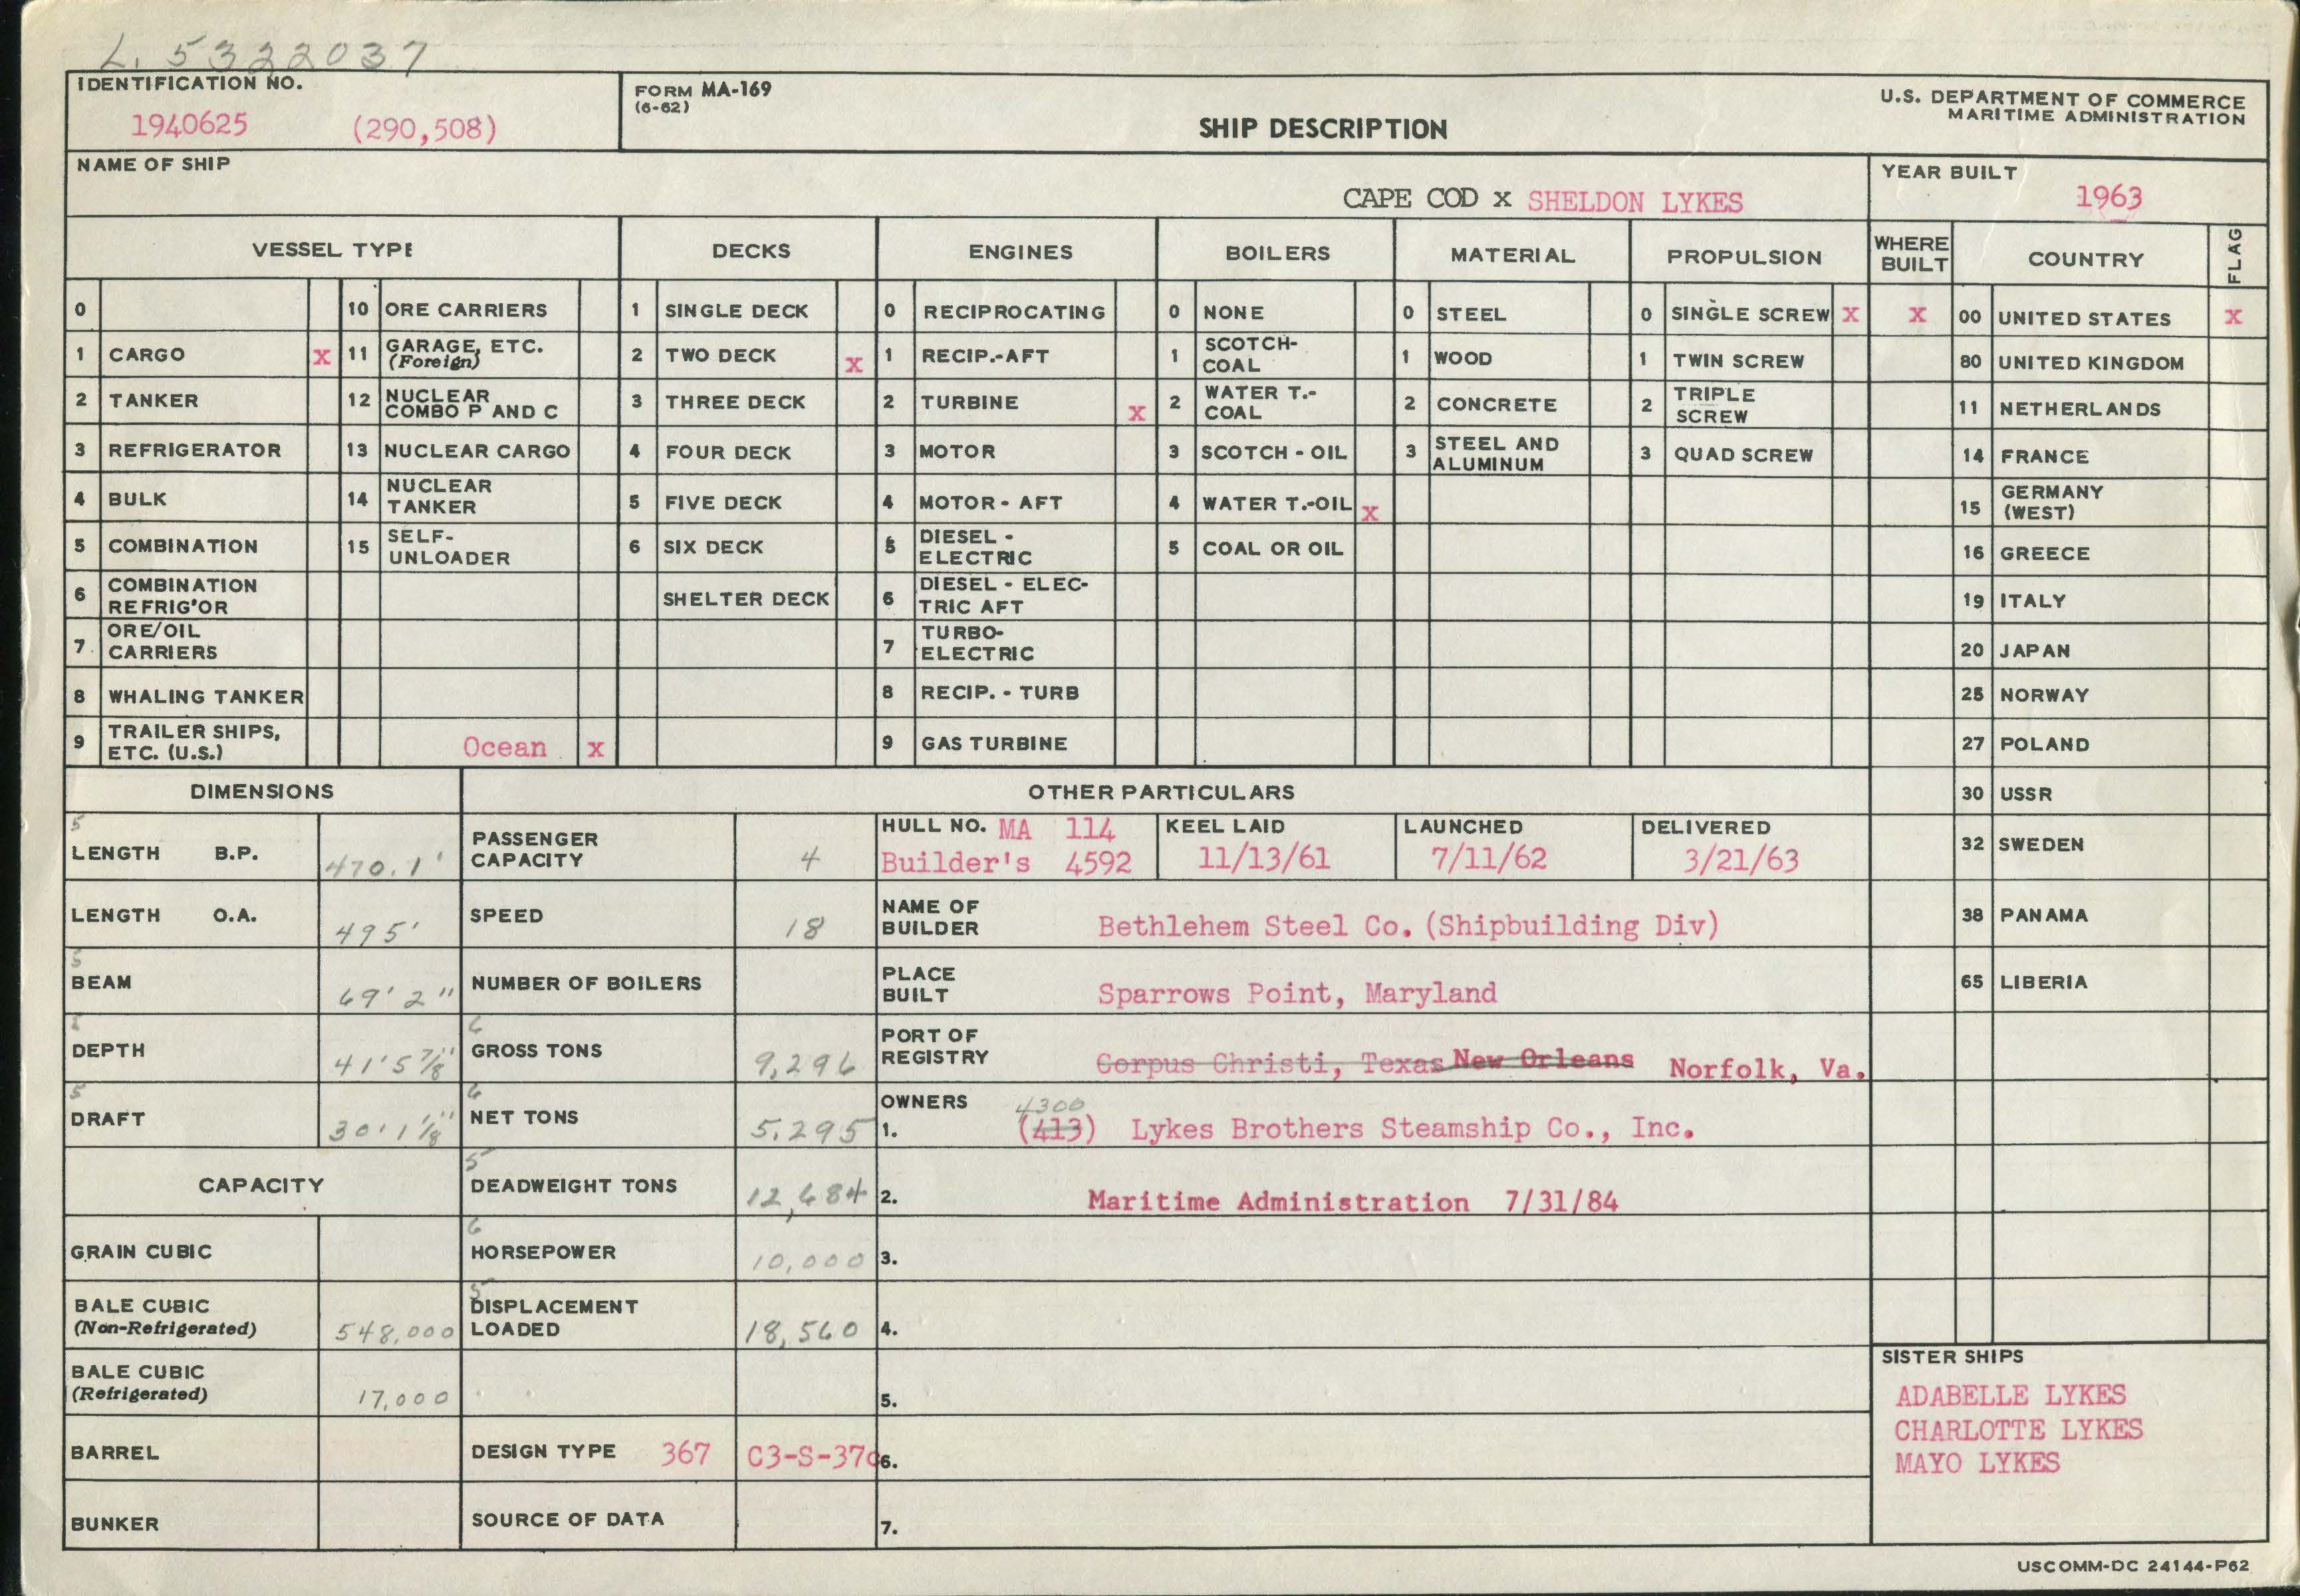 L. 5322037
IDENTIFICATION NO.
1940625 (290,508)
FORM MA-169
(6-62)
SHIP DESCRIPTION
U.S. DEPARTMENT OF COMMERCE
MARITIME ADMINISTRATION
NAME OF SHIP
CAPE COD x SHELDON LYKES
YEAR BUILT
1963
VESSEL TYPE DECKS ENGINES BOILERS MATERIAL PROPULSION WHERE BUILT COUNTRY FLAG
0 10 ORE CARRIERS 1 SINGLE DECK 0 RECIPROCATING 0 NONE 0 STEEL 0 SINGLE SCREW x x 00 UNITED STATES x
1 CARGO x 11 GARAGE, ETC. (Foreign) 2 TWO DECK x 1 RECIP.-AFT 1 SCOTCH-COAL 1 WOOD 1 TWIN SCREW 80 UNITED KINGDOM
2 TANKER 12 NUCLEAR COMBO P AND C 3 THREE DECK 2 TURBINE x 2 WATER T.-COAL 2 CONCRETE 2 TRIPLE SCREW 11 NETHERLANDS
3 REFRIGERATOR 13 NUCLEAR CARGO 4 FOUR DECK 3 MOTOR 3 SCOTCH - OIL 3 STEEL AND ALUMINUM 3 QUAD SCREW 14 FRANCE
4 BULK 14 NUCLEAR TANKER 5 FIVE DECK 4 MOTOR - AFT 4 WATER T.-OIL x 15 GERMANY (WEST)
5 COMBINATION 15 SELF-UNLOADER 6 SIX DECK 5 DIESEL - ELECTRIC 5 COAL OR OIL 16 GREECE
6 COMBINATION REFRIG'OR SHELTER DECK 6 DIESEL - ELECTRIC AFT 19 ITALY
7 ORE/OIL CARRIERS 7 TURBO-ELECTRIC 20 JAPAN
8 WHALING TANKER 8 RECIP. - TURB 25 NORWAY
9 TRAILER SHIPS, ETC. (U.S.) Ocean x 9 GAS TURBINE 27 POLAND
DIMENSIONS OTHER PARTICULARS 30 USSR
5
LENGTH B.P. 470.1' PASSENGER CAPACITY 4 HULL NO. MA 114 Builder's 4592 KEEL LAID 11/13/61 LAUNCHED 7/11/62 DELIVERED 3/21/63 32 SWEDEN
LENGTH O.A. 495' SPEED 18 NAME OF BUILDER Bethlehem Steel Co. (Shipbuilding Div) 38 PANAMA
5
BEAM 69' 2" NUMBER OF BOILERS PLACE BUILT Sparrows Point, Maryland 65 LIBERIA
6
DEPTH 41' 5 7/8" GROSS TONS 9,296 PORT OF REGISTRY Corpus Christi, Texas New Orleans Norfolk, Va.
5 6
DRAFT 30' 1 1/8" NET TONS 5,295 OWNERS 1. 4300 (413) Lykes Brothers Steamship Co., Inc.
5
CAPACITY DEADWEIGHT TONS 12,684 2. Maritime Administration 7/31/84
6
GRAIN CUBIC HORSEPOWER 10,000 3.
5
BALE CUBIC (Non-Refrigerated) 548,000 DISPLACEMENT LOADED 18,560 4.
BALE CUBIC (Refrigerated) 17,000 5.
BARREL DESIGN TYPE 367 C3-S-37c 6.
BUNKER SOURCE OF DATA 7.
SISTER SHIPS
ADABELLE LYKES
CHARLOTTE LYKES
MAYO LYKES
USCOMM-DC 24144-P62